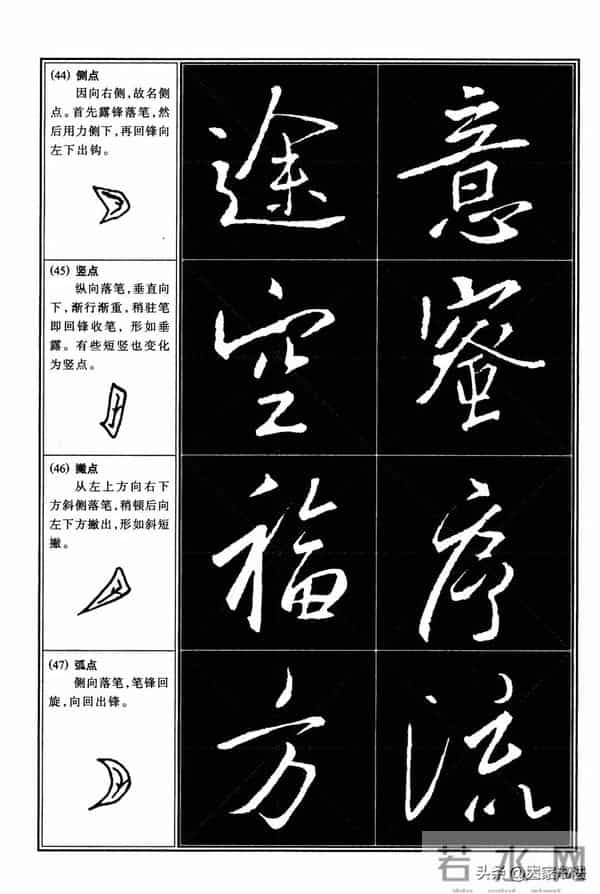 (44) 侧点
因向右侧，故名侧
点。首先露锋落笔，然
后用力侧下，再回锋向
左下出钩。
途 意
(45) 竖点
纵向落笔，垂直向
下，渐行渐重，稍驻笔
即回锋收笔，形如垂
露。有些短竖也变化
为竖点。
空 蜜
(46) 撇点
从左上方向右下
方斜侧落笔，稍顿后向
左下方撇出，形如斜短
撇。
福 序
(47) 弧点
侧向落笔，笔锋回
旋，向回出锋。
方 流
若水网
头条@